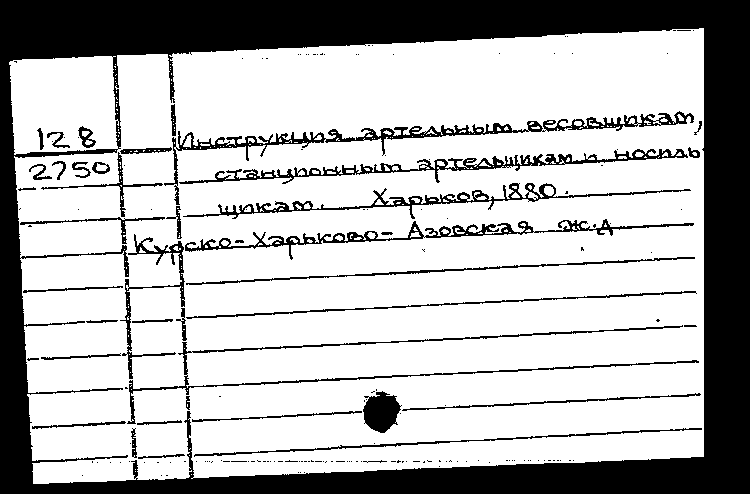 128
2750
Инструкция артельным весовщикам,
станционным артельщикам и носиль
щикам. Харьков, 1880.
Курско-Харьково-Азовская ж.д